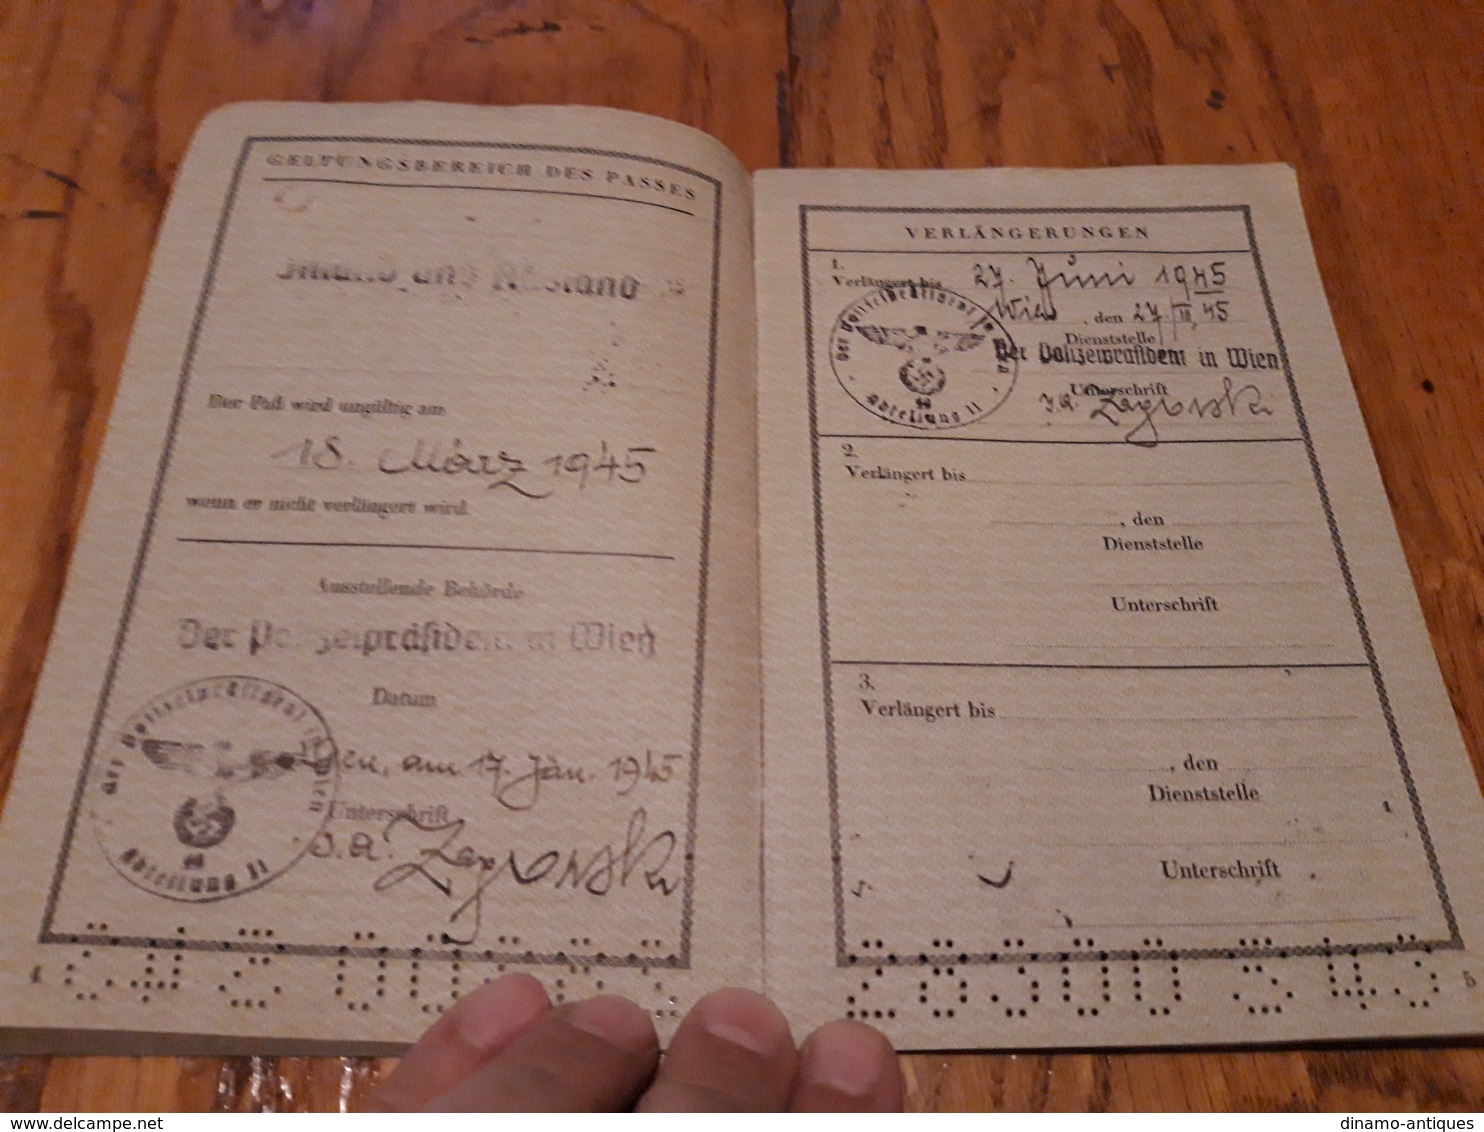 GELTUNGSBEREICH DES PASSES
Inland und Ausland
Der Paß wird ungültig am
18. März 1945
wenn er nicht verlängert wird.
Ausstellende Behörde
Der Polizeipräsident in Wien
Datum
Wien, am 17. Jän. 1945
Unterschrift
Der Polizeipräsident in Wien
Abteilung II
4
VERLÄNGERUNGEN
1.
Verlängert bis 27. Juni 1945
Wien, den 27. III. 45
Dienststelle
Der Polizeipräsident in Wien
Unterschrift
Der Polizeipräsident in Wien
Abteilung II
2.
Verlängert bis
, den
Dienststelle
Unterschrift
3.
Verlängert bis
, den
Dienststelle
Unterschrift
5
delcampe.net
dinamo-antiques